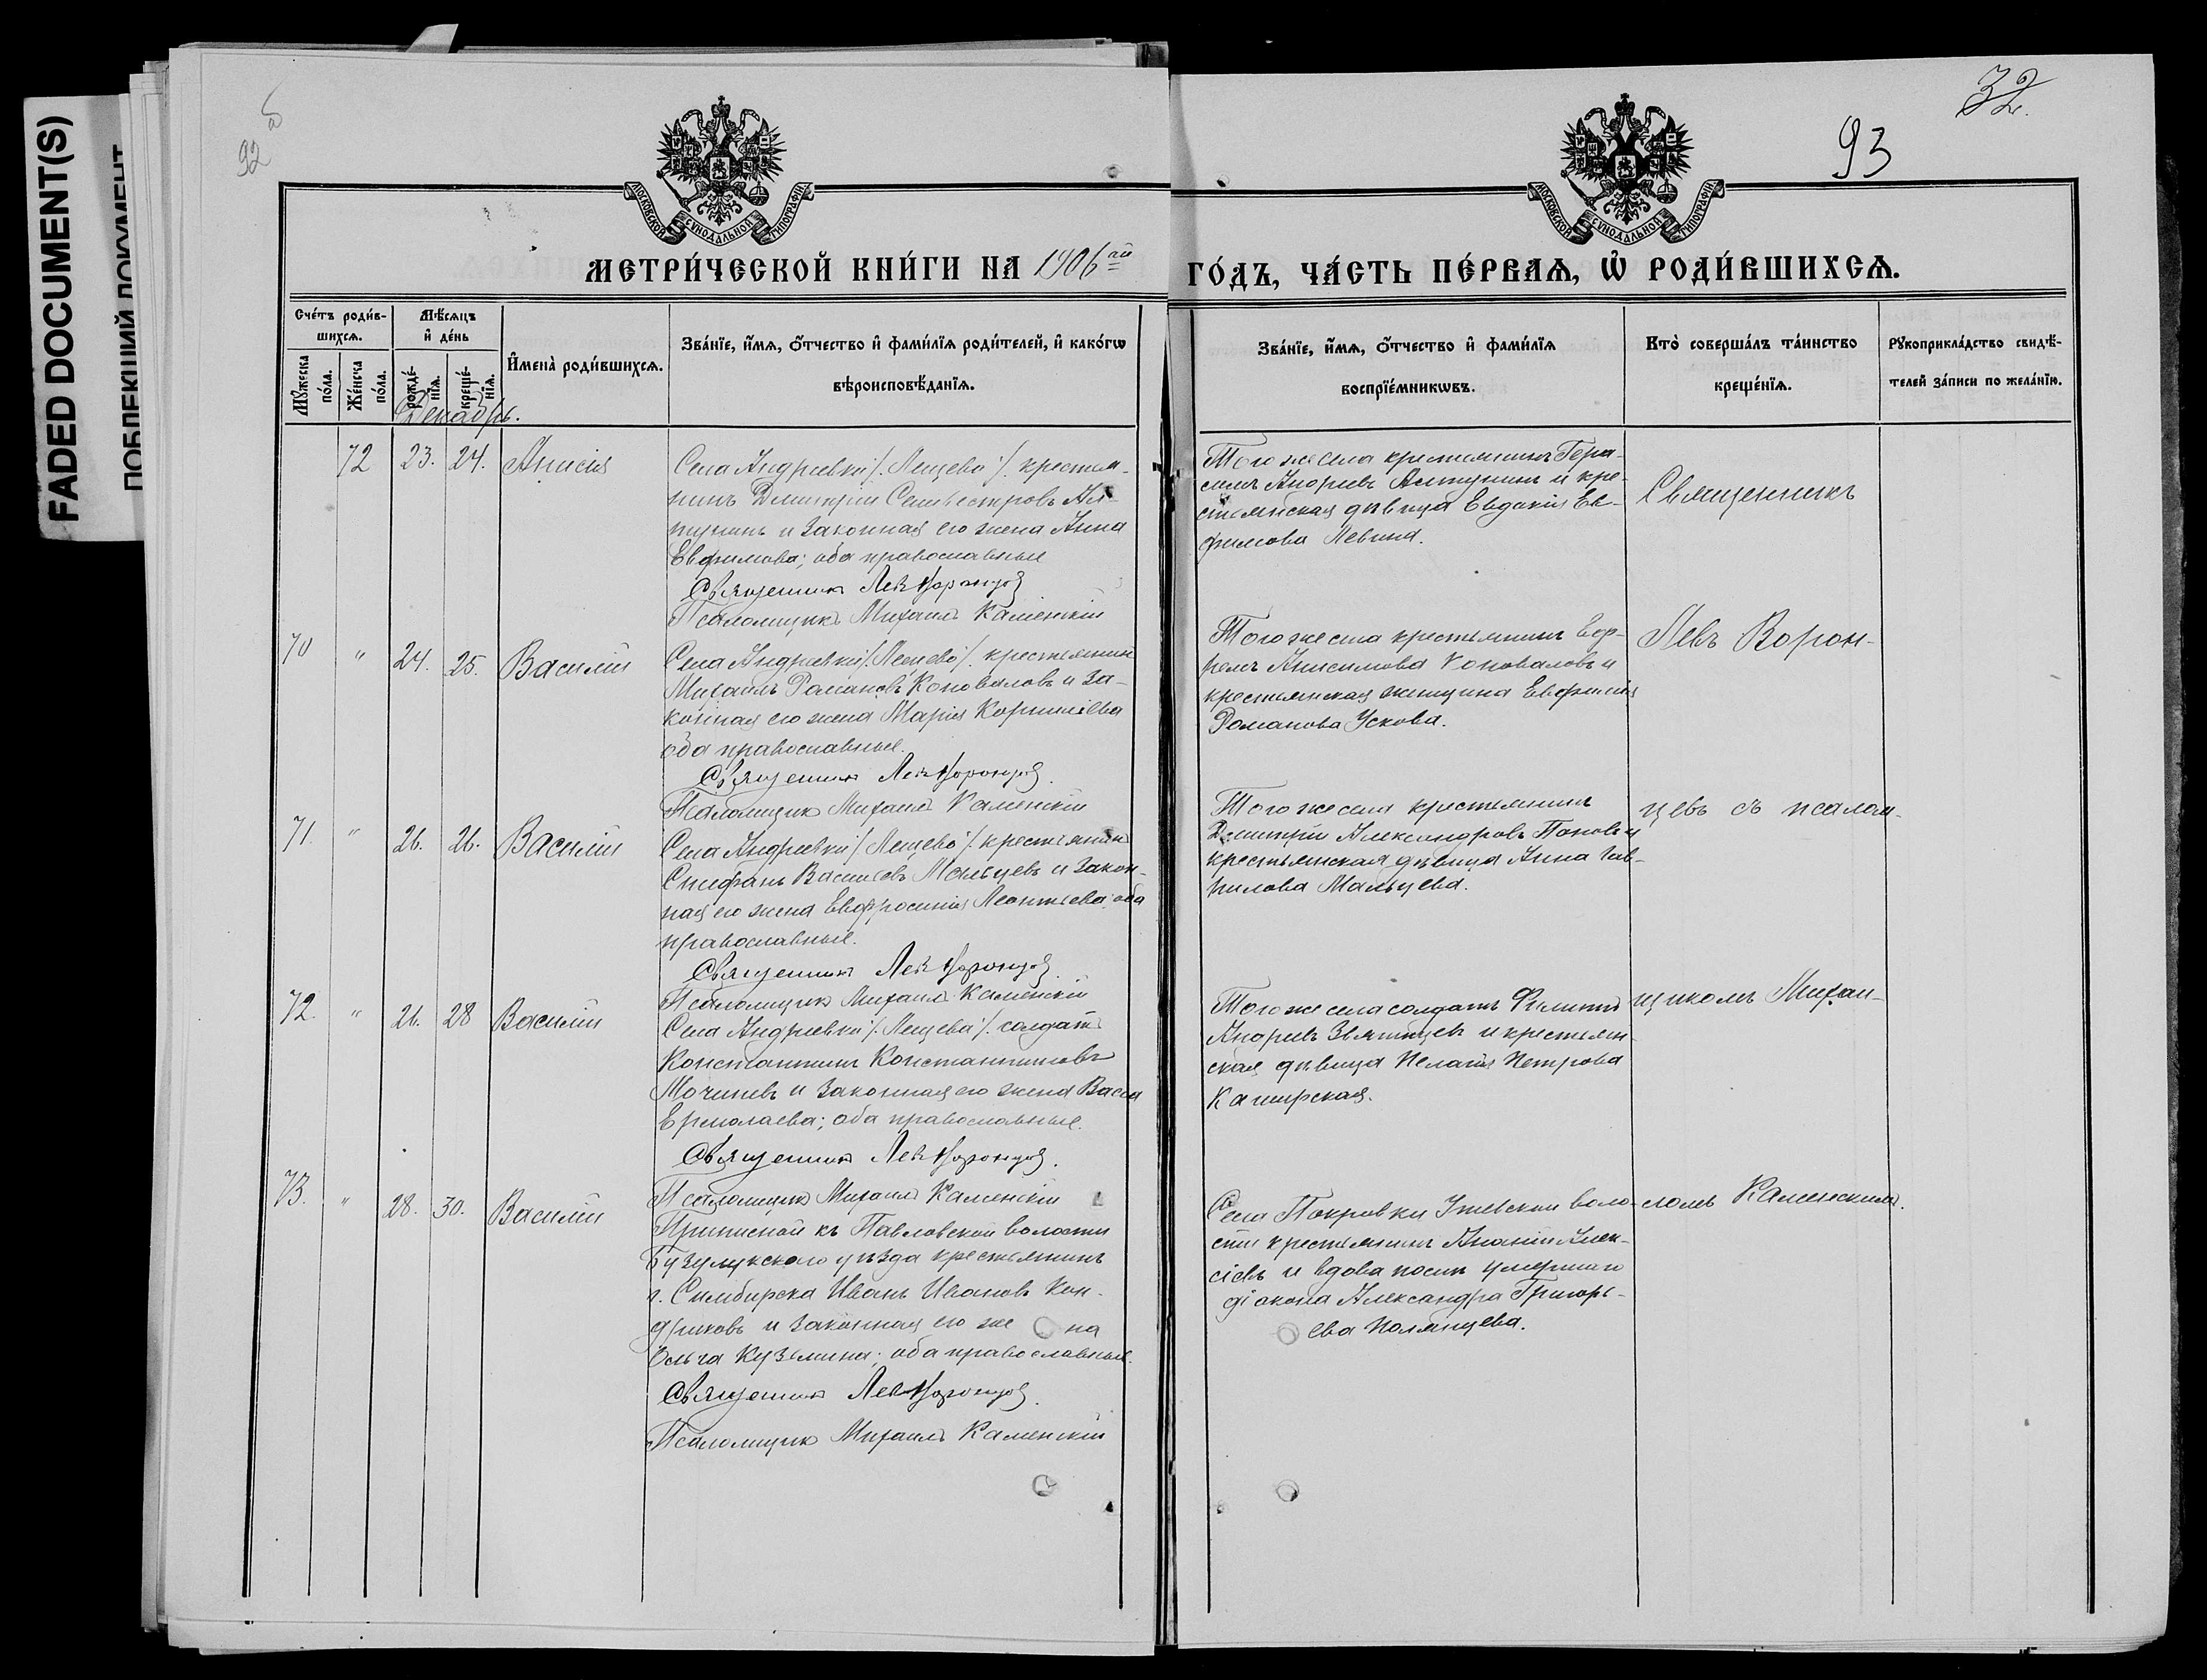 FADED DOCUMENT(S)
ПОБЛЕКШИЙ ДОКУМЕНТ
92
32.
93
МОСКОВСКОЙ СѴНОДАЛЬНОЙ ТИПОГРАФІИ
МОСКОВСКОЙ СѴНОДАЛЬНОЙ ТИПОГРАФІИ
МЕТРИ́ЧЕСКОЙ КНИ́ГИ НА 1906ый ГО́ДЪ, ЧА́СТЬ ПЕ́РВАѦ, Ѡ҆ РОДИ́ВШИХСѦ.
Сче́тъ роди́в-
шихсѧ.
Мꙋ́жеска
по́ла.
Же́нска
по́ла.
Мѣ́сѧцъ
и҆ де́нь
рожде́-
нїѧ.
креще́-
нїѧ.
И҆мена̀ роди́вшихсѧ.
Зва́нїе, и҆́мѧ, ѻ҆́тчество и҆ фами́лїѧ роди́телей, и҆ како́гѡ
вѣроисповѣ́данїѧ.
Зва́нїе, и҆́мѧ, ѻ҆́тчество и҆ фами́лїѧ
воспрїе́мникѡвъ.
Кто̀ соверша́лъ та́инство
креще́нїѧ.
Рꙋкоприкла́дство свидѣ́-
телей за́писи по жела́нїю.
Декабрь.
72 23. 24. Анисія
Села Андреевки /. Лещево ./ крестья-
нинъ Димитрій Селивестровъ Ал-
тунинъ и законная его жена Анна
Евфимова; оба православные
Священникъ Левъ Воронцов
Псаломщикъ Михаилъ Каменскій
Того же села крестьянинъ Гера-
симъ Андреевъ Алтунинъ и кре-
стьянская дѣвица Евдокія Ев-
фимова Левина.
Священникъ
70 " 24. 25. Василій
Села Андреевки /. Лещево ./ крестьянин
Михаилъ Романовъ Коноваловъ и за-
конная его жена Марія Корнилиева
оба православные.
Священникъ Левъ Воронцов.
Псаломщикъ Михаилъ Каменскій
Того же села крестьянинъ
Анисимова Коноваловъ и
крестьянская женщина Евфимія
Романова Ускова.
Левъ Ворон-
71. " 26. 26. Василій
Села Андреевки /. Лещево ./ крестьянинъ
Василіевъ Мальцевъ и закон-
ная его жена Евфросинія Леонтьева; оба
православные.
Священникъ Левъ Воронцов.
Псаломщикъ Михаилъ Каменскій
Того же села крестьянинъ
Димитрій Александровъ Поповъ и
крестьянская дѣвица Анна Гав-
рилова Мальцева.
цевъ съ псалом-
72. " 26. 28 Василій
Села Андреевки /. Лещева ./ солдатъ
Константинъ Константиновъ
Мочиневъ и законная его жена Васса
Ермолаева; оба православные.
Священникъ Левъ Воронцов.
Псаломщикъ Михаилъ Каменскій
Того же села солдатъ Филиппъ
Андреевъ и крестьян-
ская дѣвица Пелагія Петрова
Каширская.
щикомъ Михаи-
73. " 28. 30. Василій
Приписной къ Павловской волости
Бузулукского уѣзда крестьянинъ
г. Симбирска Иванъ Ивановъ Кон-
дриковъ и законная его же на
Ольга Кузьмина; оба православные.
Священникъ Левъ Воронцов.
Псаломщикъ Михаилъ Каменскій
Села Покровки Утевской воло-
сти крестьянинъ Ананій Алек-
сіевъ и вдова послѣ умершаго
діакона Александра Григорь-
ева Полянцева.
ломъ Каменскимъ.